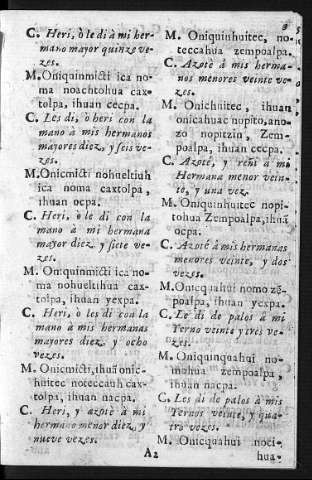 C. Heri, ò le di à mi her-
mano mayor quinze ve-
zes.
M. Oniquinmicti ica no-
ma noachtohua cax-
tolpa, ihuan cecpa.
C. Les di, ò heri con la
mano à mis hermanos
mayores diez, y seis ve-
zes.
M. Onicmicti nohueltiuh
ica noma caxtolpa,
ihuan ocpa.
C. Heri, ò le di con la
mano à mi hermana
mayor diez, y siete ve-
zes.
M. Oniquinmicti ica no-
ma nohueltihua cax-
tolpa, ihuan yexpa.
C. Heri, ò les di con la
mano à mis hermanas
mayores diez, y ocho
vezes.
M. Onicmicti, ihuã onic-
huitec noteccauh cax-
tolpa, ihuan nacpa.
C. Heri, y azotè à mi
hermano menor diez, y
nueve vezes.
A2
M. Oniquinhuitec, no-
teccahua zempoalpa.
C. Azotè à mis herma-
nos menores veinte ve-
zes.
M. Onichuitec, ihuan
onicahuac nopito, ano-
zo nopitzin, Zem-
poalpa, ihuan cecpa.
C. Azotè, y reñi à mi
Hermana menor vein-
te, y una vez.
M. Oniquinhuitec nopi-
tohua Zempoalpa, ihuã
ocpa.
C. Azotè à mis hermanas
menores veinte, y dos
vezes.
M. Onicquahui nomo zẽ-
poalpa, ihuan yexpa.
C. Le di de palos à mi
Yerno veinte y tres ve-
zes.
M. Oniquinquahui no-
mohua zempoalpa,
ihuan nacpa.
C. Les di de palos à mis
Yernos veinte, y qua-
tro vezes.
M. Onicquahui noci-
hua-